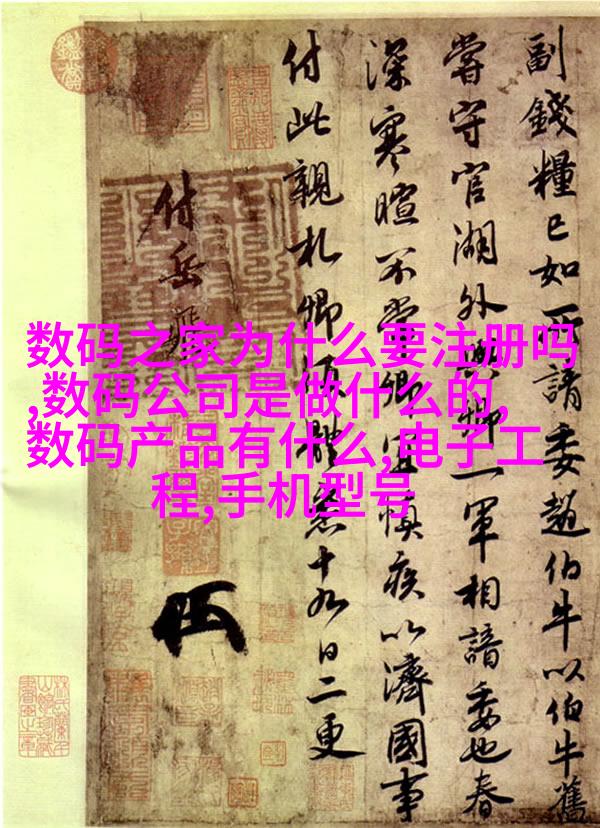 数码之家为什么要注册吗
,数码公司是做什么的,
数码产品有什么,电子工
程,手机型号
副錢糧已如所請委趙伯牛以伯牛舊
嘗守官湖外與卿一軍相諳委也春
深寒暄不常卿宜慎疾以濟國事
付此親札卿須體悉十九日二更
付岳飛